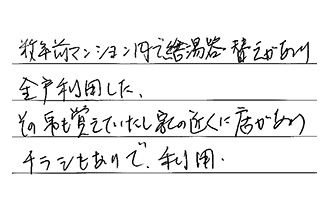 数年前マンション内で給湯器替えがあり
全戸利用した、
その事も覚えていたし家の近くに店があり
チラシもありで、利用.